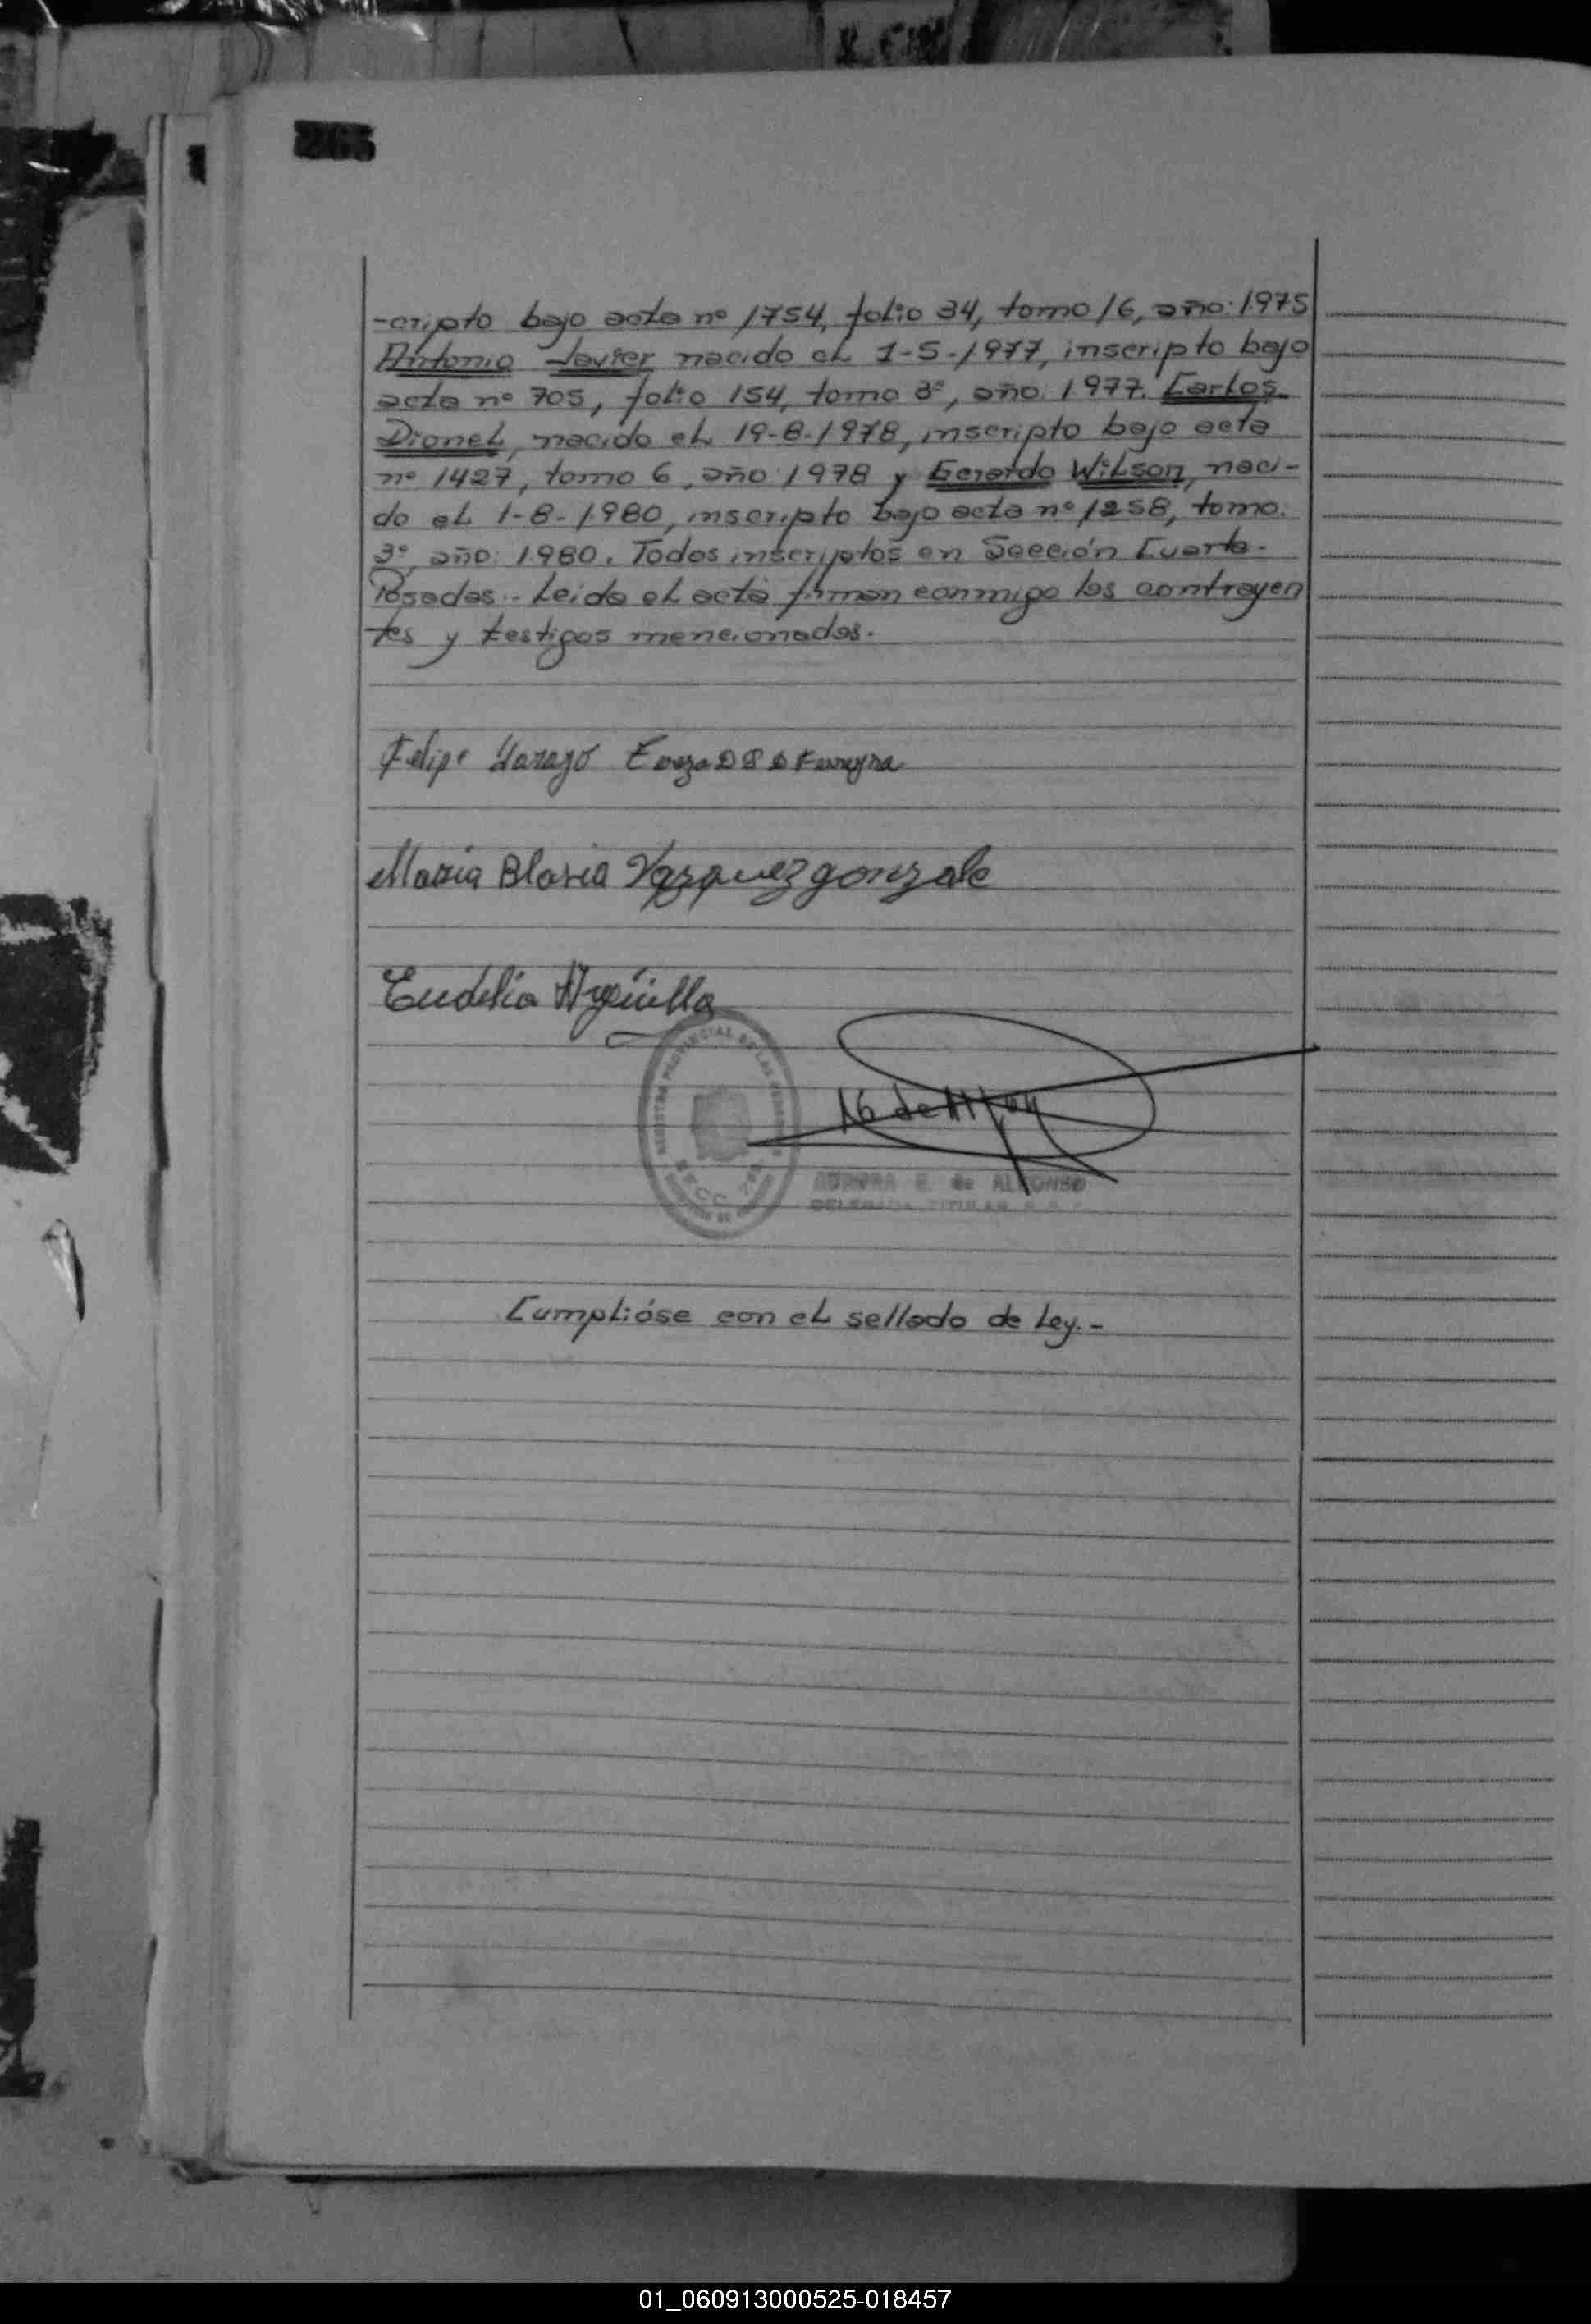 265
-cripto bajo acta nº 1754, folio 34, tomo 16, año: 1975
Antonio Javier nacido el 1-5-1977, inscripto bajo
acta nº 705, folio 154, tomo 3º, año: 1977. Carlos
Dionel, nacido el 19-8-1978, inscripto bajo acta
nº 1427, tomo 6, año 1978 y Gerardo Wilson, naci-
do el 1-8-1980, inscripto bajo acta nº 1258, tomo.
3º, año: 1980. Todos inscriptos en Sección Cuarta-
Posadas.- Leida el acta firman conmigo los contrayen
tes y testigos mencionados.
Felipe
María Blasia Vazquez gonzale
Eudelia
REGISTRO PROVINCIAL DE LAS PERSONAS
AURORA E. de ALFONSO
DELEGADA TITULAR
Cumplióse con el sellado de Ley.-
01_060913000525-018457